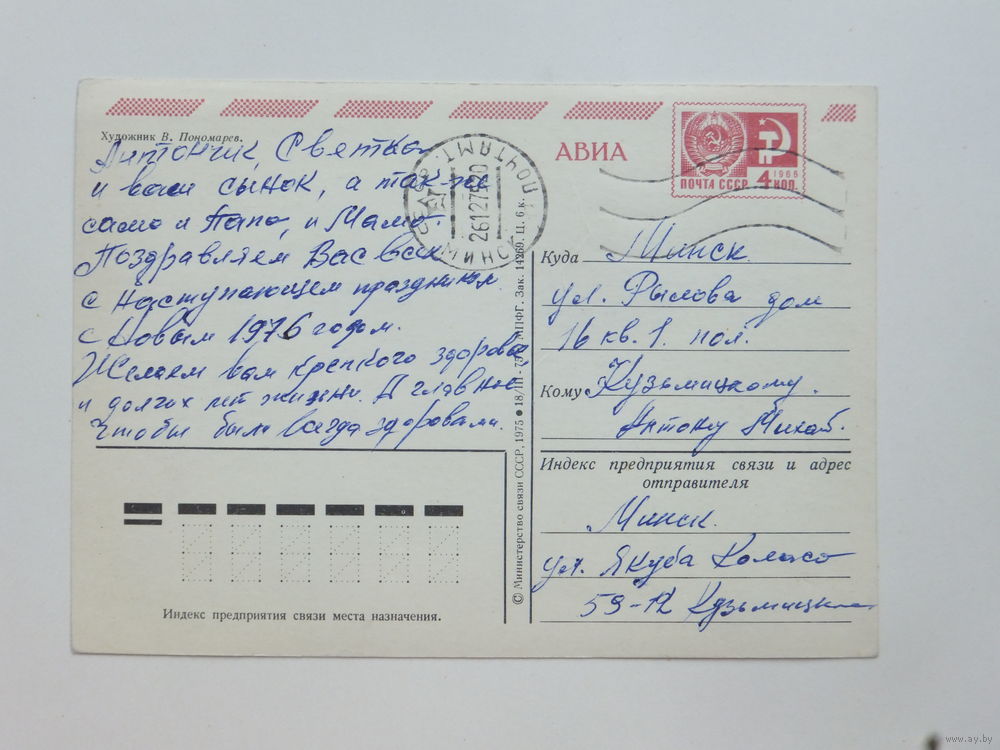 Художник В. Пономарев.
Антончик, Светка
и ваш сынок, а так же
само и Папа, и Мама.
Поздравляем Вас всех
с наступающем праздником
с Новым 1976 годом.
Желаем вам крепкого здоровья,
и долгих лет жизни. А главное
Чтобы были всегда здоровыми.
МИНСК ПОЧТАМТ
АВИА
1966
ПОЧТА СССР 4 КОП.
Куда Минск
ул. Рылова дом
16 кв. 1. пол.
Кому Кузьмицкому.
Антону Михай.
Индекс предприятия связи и адрес
отправителя
Минск.
ул. Якуба Коласа
59-12 Кузьмицкие
Индекс предприятия связи места назначения.
© Министерство связи СССР, 1975 ● 18/III - 75 МПФГ. Зак. 14269. Ц. 6 к.
www.ay.by